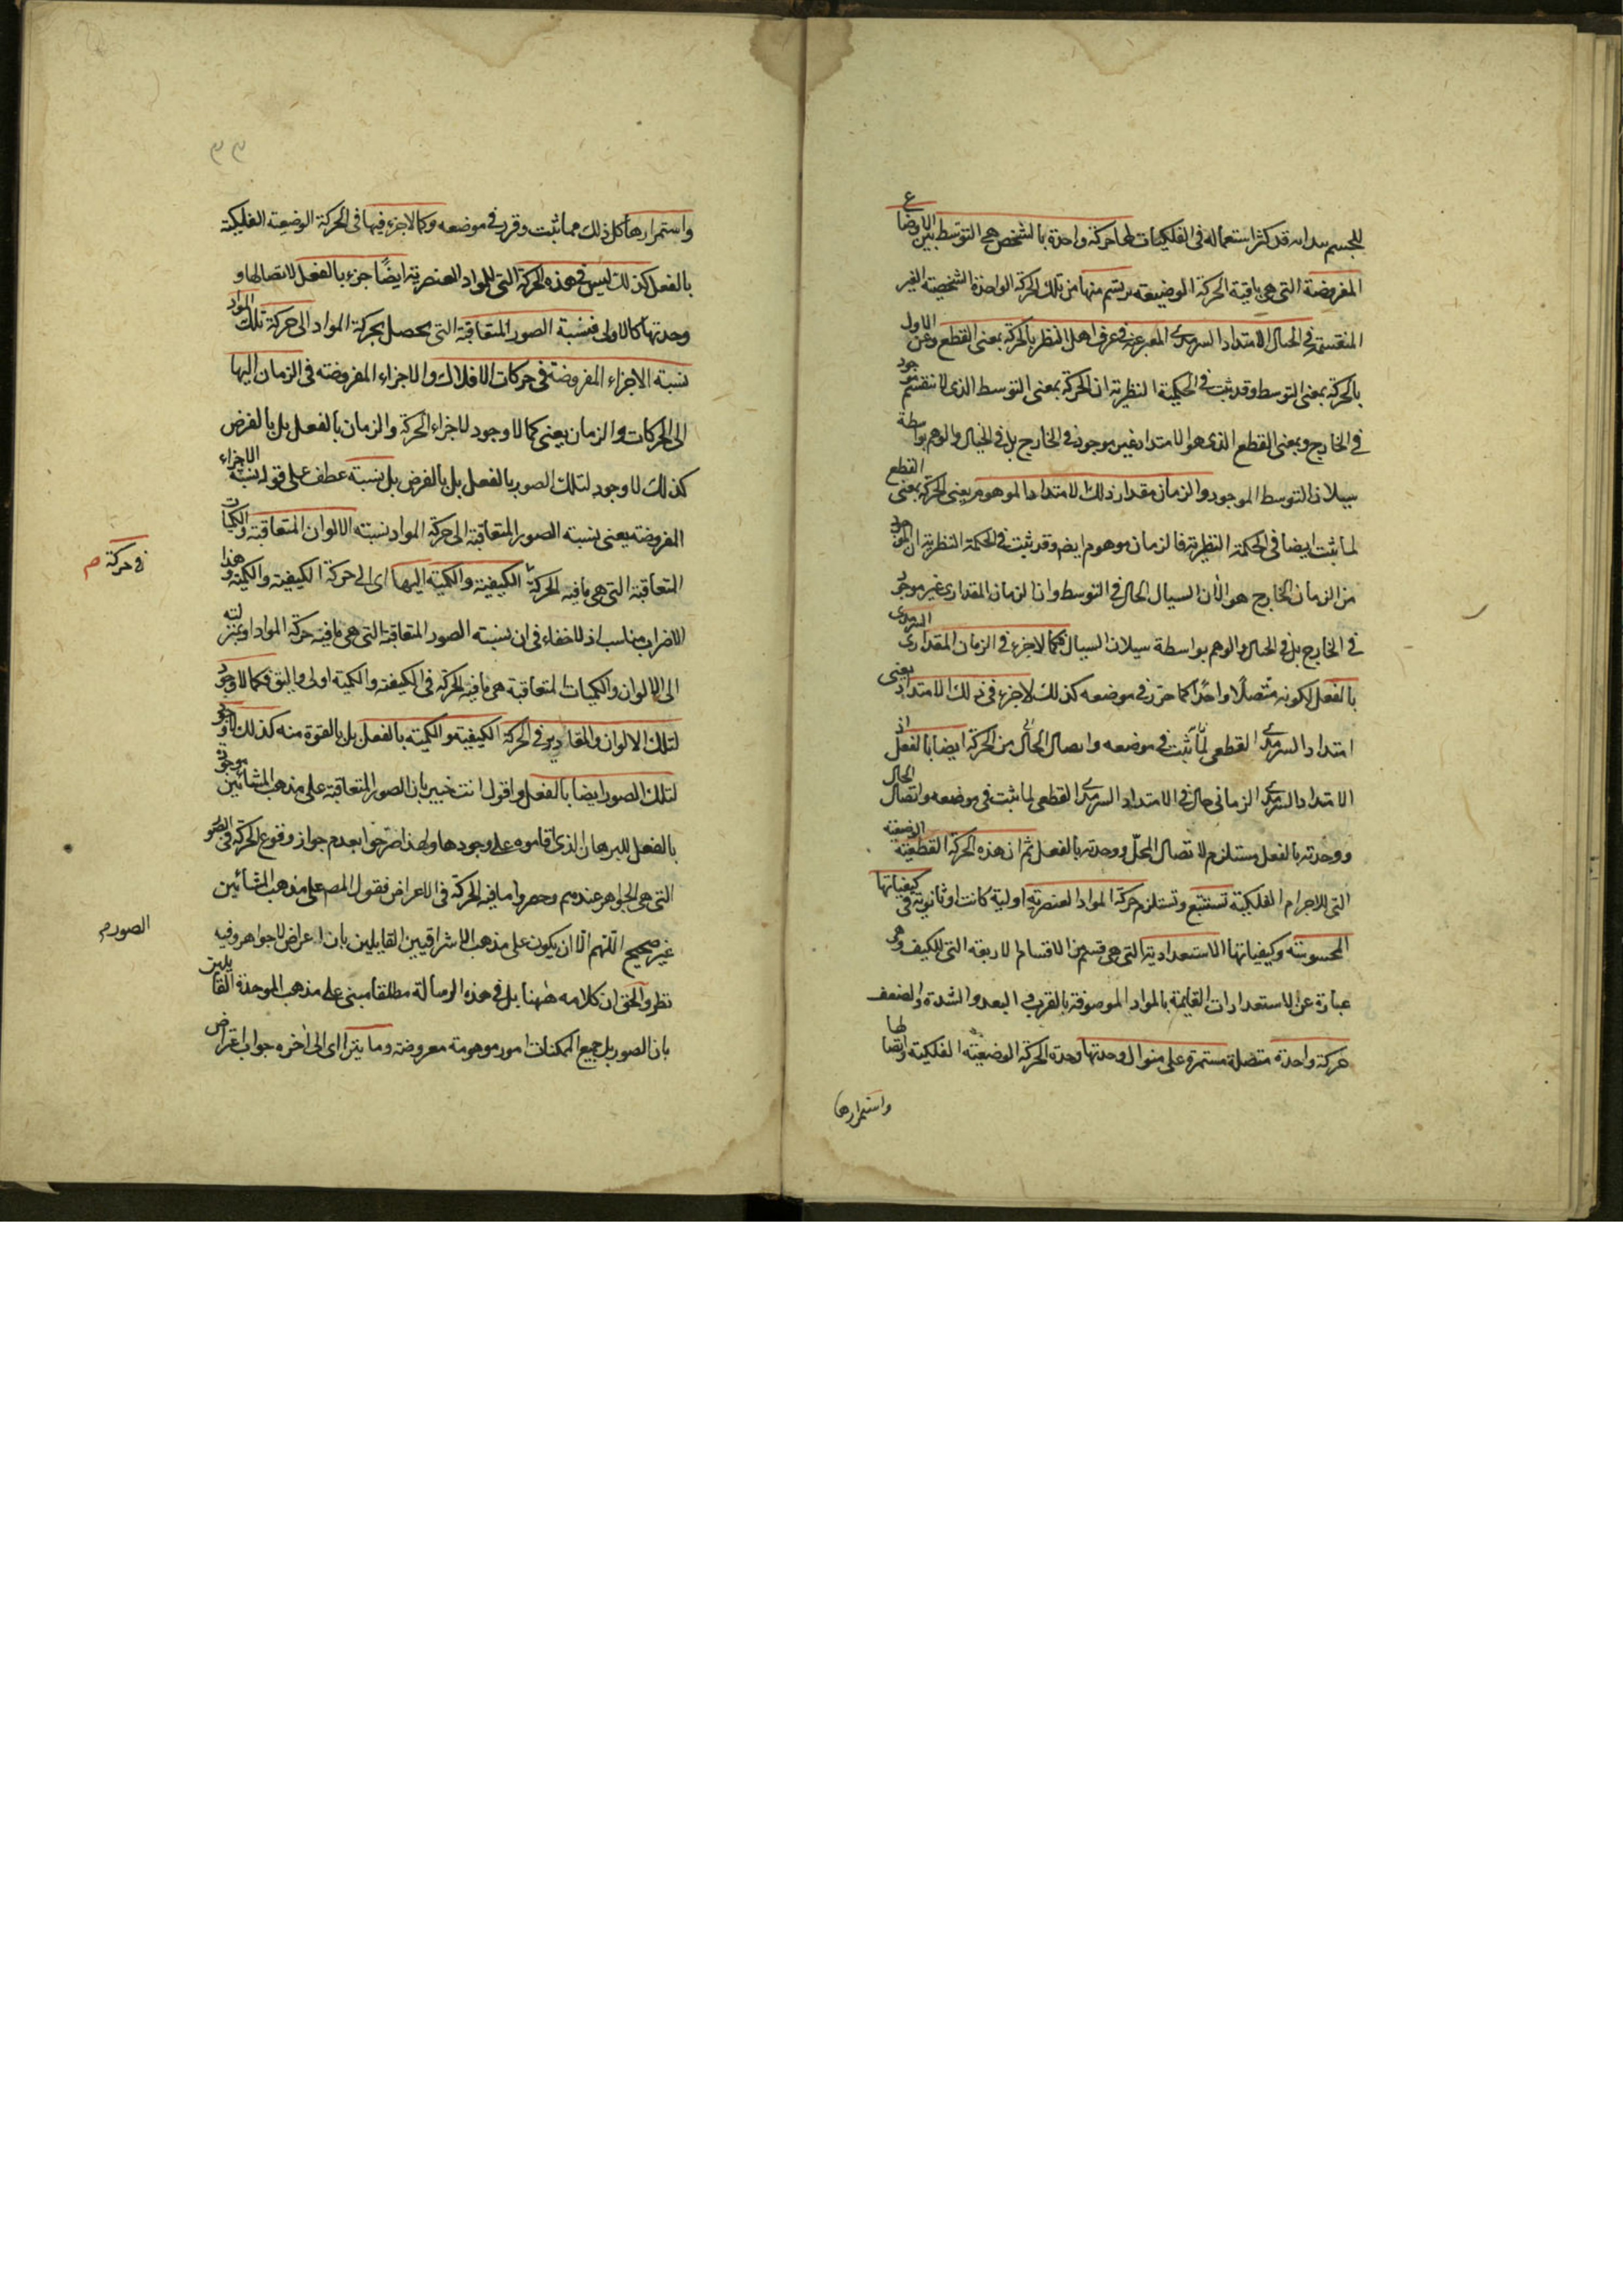 للجسم بيد انه قد كثر استعماله في الفلكيات لها حركة واحدة بالشخص هي التوسط بين الاوضاع
المفروضة التي هي ما فيه الحركة الوضعيه يرتسم منها من تلك الحركة الواحدة الشخصية الغير
المنقسمة في الخيال الامتداد السرمدي المعبر عنه في عرف اهل النظر بالحركة بمعنى القطع وعن الاول
بالحركة بمعنى التوسط وقد ثبت في الحكمية النظرية ان الحركة بمعنى التوسط الذي لا تنقسم موجود
في الخارج وبمعنى القطع الذي هو الامتداد غير موجودة في الخارج بل في الخيال والوهم بواسطة
سيلان التوسط الموجود والزمان مقدار ذلك الامتداد الموهوم يعني الحركة بمعنى القطع
لما ثبت ايضا في الحكمة النظرية فالزمان موهوم ايضا وقد ثبت في الحكمة النظرية ان الموجود
من الزمان الخارج هو الآن السيال الحال في التوسط وان الزمان المقداري غير موجود
في الخارج بل في الخيال والوهم بواسطة سيلان السيال فكما لا جزء في الزمان المقداري السرمدي
بالفعل لكونه متصلا واحدا كما حرر في موضعه كذلك لا جزء في ذلك الامتداد يعني
امتداد السرمدي القطعي لما ثبت في موضعه واتصال الحال من الحركة ايضا بالفعل اذ
الامتداد السرمدي الزماني حال في الامتداد السرمدي القطعي لما ثبت في موضعه واتصال الحال
ووحدته بالفعل مستلزم لاتصال المحل ووحدته بالفعل ثم ان هذه الحركة القطعية الوضعية
التي للاجرام الفلكية تستتبع وتستلزم حركة المواد العنصرية اولية كانت او ثانوية في كيفياتها
المحسوسة وكيفياتها الاستعدادية التي هي قسم من الاقسام الاربعة التي للكيف وهي
عبارة عن الاستعدادات القايمة بالمواد الموصوفة بالقرب و البعد والشدة والضعف
حركة واحدة متصلة مستمرة على منوال وحدتها وحدة الحركة الوضعية الفلكية واتصالها
واستمرارها
٣٣
واستمرارها كل ذلك مما ثبت وقرر في موضعه وكما لا جزء فيها في الحركة الوضعية الفلكية
بالفعل كذلك ليس في هذه الحركة التي للمواد العنصرية ايضًا جزء بالفعل لاتصالها و
وحدتها كالاولى فنسبة الصور المتعاقبة التي يحصل بحركة المواد الى حركة تلك المواد
نسبة الاجزاء المفروضة في حركات الافلاك والاجزاء المفروضة في الزمان اليها
الى الحركات والزمان يعني كما لا وجود لاجزاء الحركة والزمان بالفعل بل بالفرض
كذلك لا وجود لتلك الصور بالفعل بل بالفرض بل نسبة عطف على قوله نسبة الاجزاء
المفروضة يعني نسبة الصور المتعاقبة الى حركة المواد نسبة الالوان المتعاقبة والكميات
المتعاقبة التي هي ما فيه الحركة الكيفية والكمية اليها اى الى حركة الكيفية والكمية وهذا
في حركة صح
الاضراب مناسب اذ لا خفاء في ان نسبة الصور المتعاقبة التي هي ما فيه حركة المواد او بمنزلته
الى الالوان والكميات المتعاقبة هي ما فيه الحركة في الكيفية والكمية اولى واليق فكما لا وجود
لتلك الالوان والمقادير في الحركة الكيفية والكمية بالفعل بل بالقوة منه كذلك لا وجود
لتلك الصور ايضا بالفعل واقول انت خبير بان الصور المتعاقبة على مذهب المشائين موجودة
بالفعل للبرهان الذي اقاموه على وجودها ولهذا صرحوا بعدم جواز وقوع الحركة في الصور
التي هي الجواهر عندهم وحصروا ما فيه الحركة في الاعراض فقول المص على مذهب المشائين
غير صحيح اللهم الا ان يكون على مذهب الاشراقيين القايلين بان الاعراض لا جواهر وفيه
الصور صح
نظر والحق ان كلامه ههنا بل في هذه الرسالة مطلقا مبني على مذهب الموحدة القايلين
بان الصور بل جميع الممكنات امور موهومة معروضة وما يتراآى الى آخره جواب اعتراض